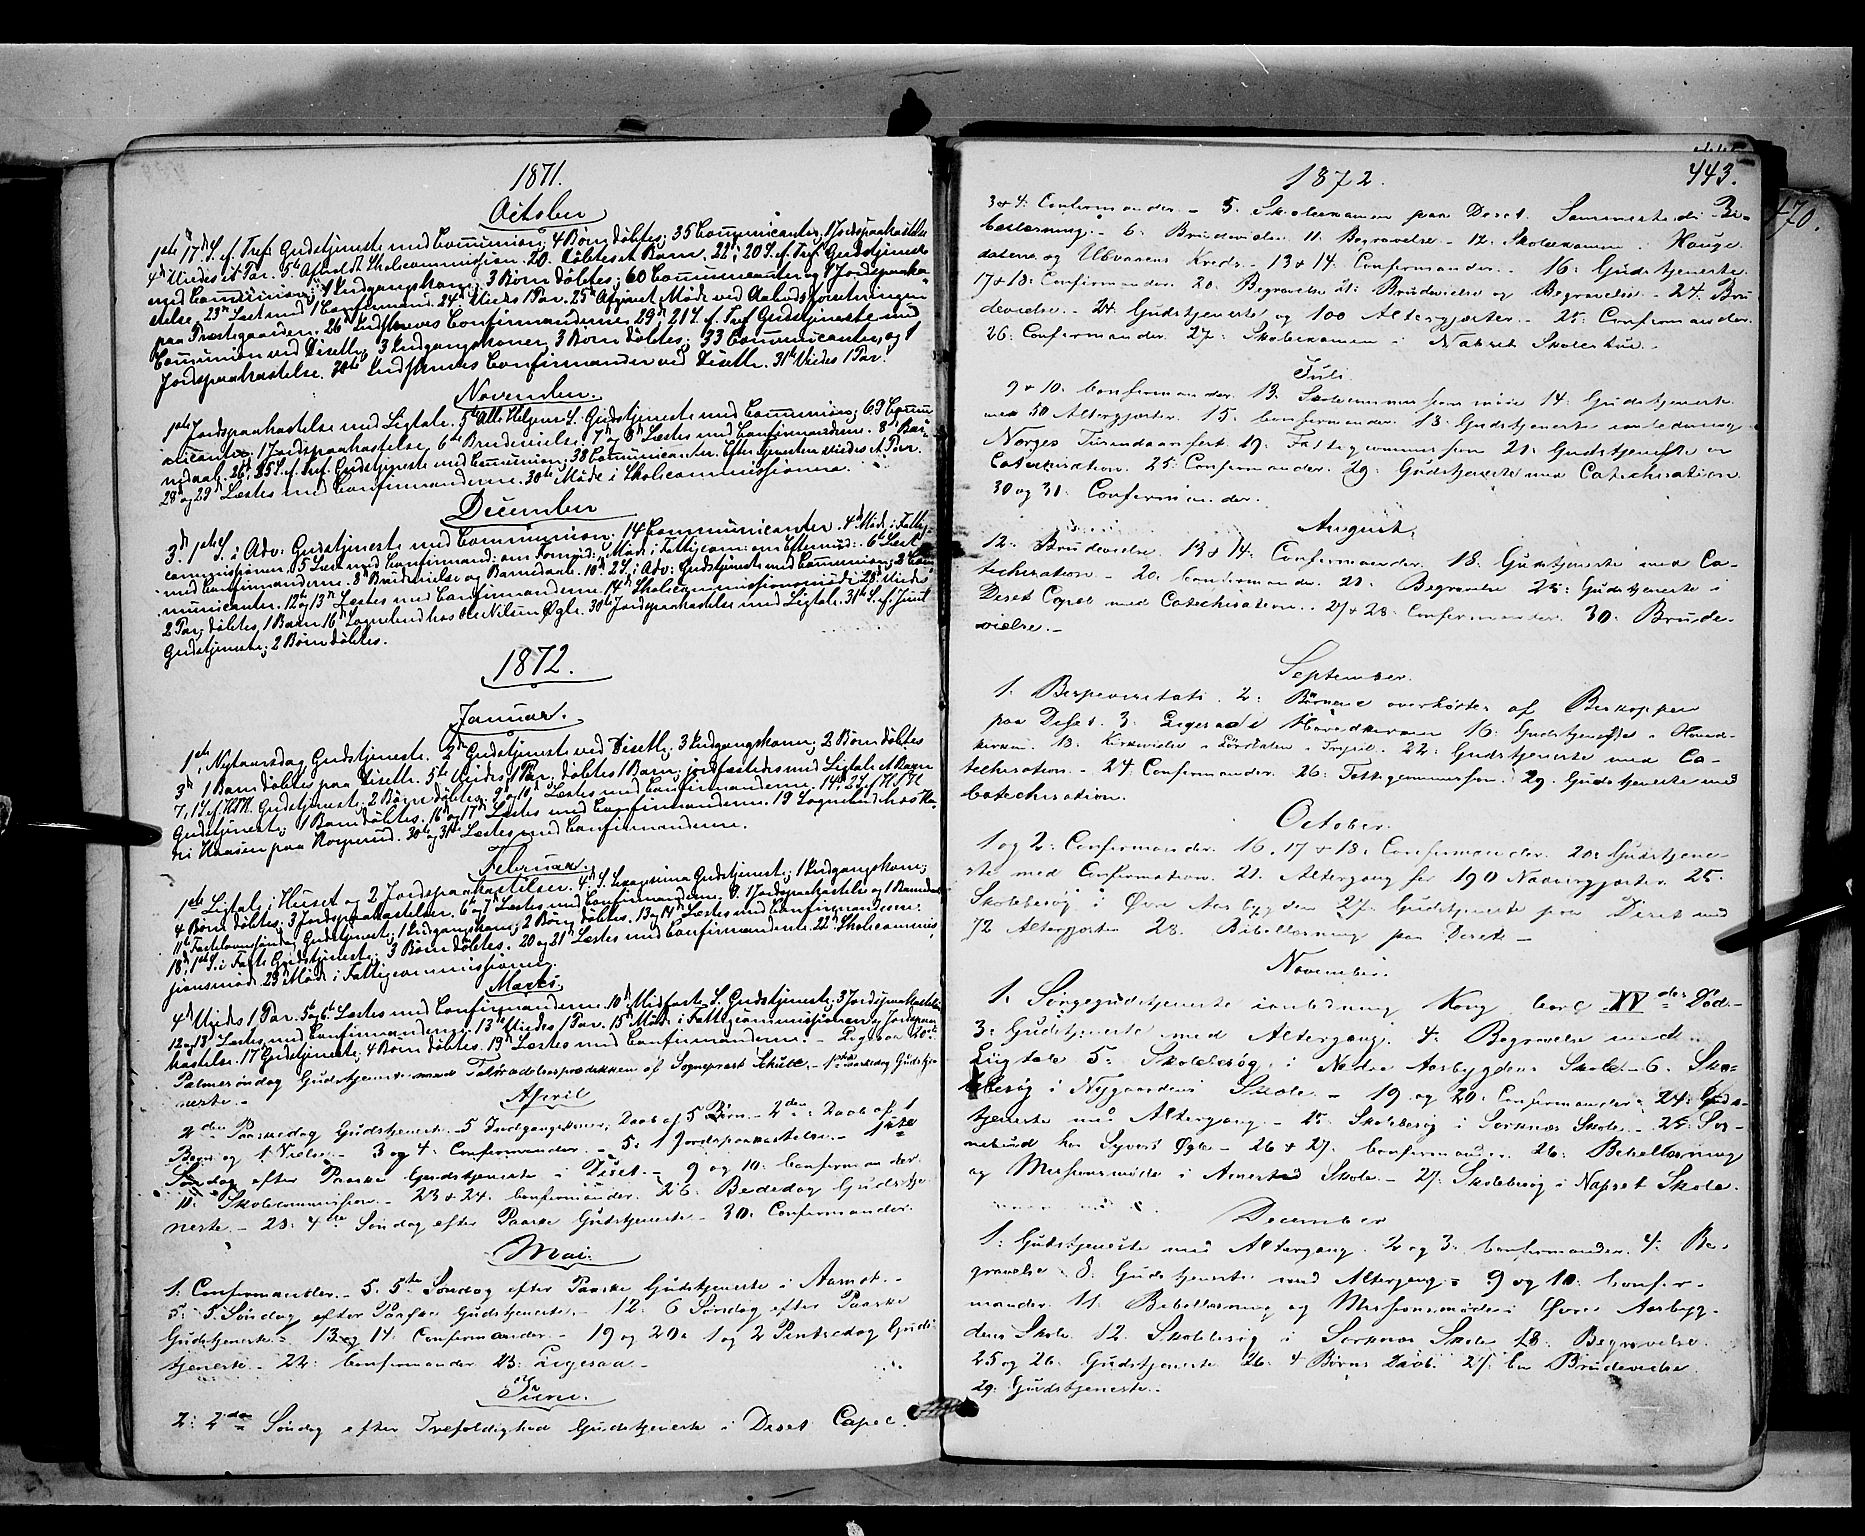 1871.
October
1ste, 17de S. ef. Tref. Gudstjeneste med Communion; 4 Børn døbtes; 35 Communicanter, 1 Jordspaakastelse
4de Viedes et Par. 5te Afholdt Skolecommission. 20. Døbtes et Barn. 22; 20 S. ef. Tref. Gudstjeneste
med Communion; 1 Indgangskone; 3 Børn døbtes; 60 Communicanter og 1 Jordspaaka-
stelse. 23de Læst med 1 Confirmand. 24de Viedes 1 Par. 25de Møde ved
paa Præstegaarden. 26de Confirmanderne. 29de, 21 S. ef. Tref. Gudstjeneste med
Communion ved Disetb., 3 Indgangskoner, 3 Børn døbtes; 33 Communicanter, og 1
Jordspaakastelse. 30te Confirmander ved Disetb. 31te Viedes 1 Par.
November.
1ste Jordspaakastelse med Ligtale. 5te Alle Helgens S. Gudstjeneste med Communion; 69 Commu-
nicanter. 1 Jordspaakastelse. 6te Brudevielse. 7de og 8de Læstes med Confirmanderne. 8de Bar-
nedaab. 26de, 25 S. ef. Tref. Gudstjeneste med Communion; 38 Communicanter. Eftergjesten viedes et Par.
28de og 29de Læstes med Confirmanderne. 30te Møde i Skolecommissionen.
December
3de, 1ste S. i Adv. Gudstjeneste med Communion; 14 Communicanter. 4de Møde i Fattig-
commissionen. 5 Læst med Confirmand: om Formid: Møde i Fattigcom: om Eftermid: 6te Læst
med Confirmanderne. 8de Brudevielse og Barnedaab. 10de 2 S. i Adv. Gudstjeneste med Communion; 2 Com-
municanter. 12te og 13de Læstes med Confirmanderne. 14de Skolecommissionsmøde. 28de Viedes
2 Par, døbtes 1 Barn. 16de Sognebud hos Ole Nilsen Øgle. 30te Jordspaakastelse med Ligtale. 31te S. ef. Juul
Gudstjeneste; 2 Børn døbtes.
1872.
Januar.
1ste, Nytaarsdag Gudstjeneste. 2den Gudstjeneste ved Disetb.; 3 Indgangskoner; 2 Børn døbtes
3de 1 Barn døbtes paa Disetb. 5te Viedes 1 Par; døbtes 1 Barn; jordfæstedes med Ligtale et Barn
7, 1 S. ef. H3K. Gudstjeneste; 2 Børn døbtes. 9de og 10de Læstes med Confirmanderne. 14de, 2 S. f. H3K
Gudstjeneste; 1 Barn døbtes. 16de og 17de Læstes med Confirmanderne. 19 Sognebud hos Ka-
ri Haasen paa Norperud. 30te og 31te Læstes med Confirmanderne.
Februar.
1ste Ligtale i Huset og 2 Jordspaakastelser. 4de, S. Sexagesima Gudstjeneste; 1 Indgangskone;
4 Børn døbtes; 3 Jordspaakastelser. 6te og 7de Læstes med Confirmanderne. 9. 1 Jordspaakastelse og 1 Barnedaab
11te Fastelavnssøndag Gudstjeneste; 1 Indgangskone; 2 Børn døbtes. 13 og 14de Læstes med Confirmanderne.
18de, 1ste S. i Faste Gudstjeneste; 3 Børn døbtes. 20 og 21de Læstes med Confirmanderne. 22de Skolecommis-
sionsmøde. 29de Møde i Fattigcommissionen.
Marts.
4de Viedes 1 Par. 5te og 6te Læstes med Confirmanderne. 10de Midfaste S. Gudstjeneste; 3 Jordspaakastelser
12 og 13de Læstes med Confirmanderne. 13de Viedes 1 Par. 15de Møde i Fattigcommissionen og Jordspaa-
kastelse. 17 Gudstjeneste; 4 Børn døbtes. 19de Læstes med Confirmanderne.
Palmesøndag Gudstjeneste med Tiltrædelsesprædikken af Sognepræst Schule. - 1ste Paaskedag Gudstje-
neste. -
April
2den Paaskedag Gudstjeneste. - 5 Indgangskoner, Daab af 5 Børn - 2den: Daab af 1
Barn og 1 Vielse. - 3 og 4: Confirmander. - 5: 1 Jordspaakastelse. - 1ste
Søndag efter Paaske Gudstjeneste i Diset. - 9 og 10: Confirmander.
11: Skolecommission. - 23 & 24: Confirmander. 26: Bededag Gudstje-
neste. - 28: 4de Søndag efter Paaske Gudstjeneste. - 30: Confirmander.
Mai.
1. Confirmander. - 5. 5te Søndag efter Paaske Gudstjeneste i Aamot. -
5: 5 Søndag efter Paaske Gudstjeneste. - 12: 6 Søndag efter Paaske
Gudstjeneste. - 13 og 14: Confirmander. - 19 og 20: 1 og 2 Pintsedag Guds-
tjeneste. - 22: Confirmander. 23: Ligesaa. -
Juni.
2: 2den Søndag efter Trefoldighed Gudstjeneste i Deset Capel.
1872.
443.
470.
3 & 4: Confirmander. - 5. Skoleexamen paa Deset. Sammesteds Bi-
bellæsning. - 6: Brudevielse. 11. Begravelse. - 12: Skoleexamen i Hauge-
datens og Ulvaaens Kreds. - 13 & 14: Confirmander. - 16: Gudstjeneste.
17 & 18: Confirmander. 20: Begravelse. 21: Brudevielse og Begravelse. - 24: Bru-
devielse. - 24: Gudstjeneste og 100 Altergjæster. - 25: Confirmander.
26: Confirmander. 27: Skoleexamen i Nabset Skolestue. -
Juli.
9 & 10: Confirmander. 13: Skolecommissionsmøde 14: Gudstjeneste
med 50 Altergjæster. 15: Confirmander. 18: Gudstjeneste i anledning
Norges Tusendaarsfest. 19: Fattigcommission 21: Gudstjeneste og
Catechisation. 25: Confirmander. 29: Gudstjeneste med Catechisation.
30 og 31: Confirmander.
August.
12: Brudevielse. 13 & 14: Confirmander. 18: Gudstjeneste med Ca-
techisation - 20: Confirmander. 21: Begravelse 25: Gudstjeneste i
Deset Capel med Catechisation. - 27 & 28: Confirmander. 30: Brude-
vielse. -
September.
1: Bispevisitats. 2: Børnene overhørtes af Biskoppen
paa Deset. 3: Ligesaa i Hovedkirken 16: Gudstjeneste i Hoved-
kirken. 18: Kirkevielse i Lørdalen i Trysil. 22: Gudstjeneste med Ca-
techisation. - 24: Confirmander. 26: Fattigcommission. 29: Gudstjeneste med
Catechisation.
October.
1 og 2: Confirmander. 16. 17 & 18: Confirmander. 20: Gudstjene-
ste med Confirmation. 21. Altergang for 190 Nadvergjæster. 25.
Skolebesøg i Øvre Aasbygden 27: Gudstjeneste paa Deset med
72 Altergjæster 28. Bibellæsning paa Deset. -
November.
1: Sørgegudstjeneste i anledning Kong Carl XV des Død. -
3: Gudstjeneste med Altergang. 4: Begravelse med
Ligtale 5: Skolebesøg i Nedre Aasbygdens Skole. - 6. Sko-
lebesøg i Nygaardens Skole. - 19 og 20: Confirmander. 24: Guds-
tjeneste med Altergang. - 25: Skolebesøg i Sorknæs Skole. - 25: Sog-
nebud hos Syvert Øgle - 26 & 27: Confirmander. 26: Bibellæsning
og Missionsmøde i Arnestad Skole. - 27. Skolebesøg i Nabset Skole.
December
1: Gudstjeneste med Altergang. 2 og 3: Confirmander. 4: Be-
gravelse 8: Gudstjeneste med Altergang. 9 og 10: Confir-
mander. 11: Bibellæsning og Missionsmøde i Øvre Aasbyg-
dens Skole. 12. Skolebesøg i Sorknæs Skole. 18: Begravelse.
25 og 26: Gudstjeneste. 26: 4 Børns Daab. 27: En Brudevielse.
29: Gudstjeneste. -